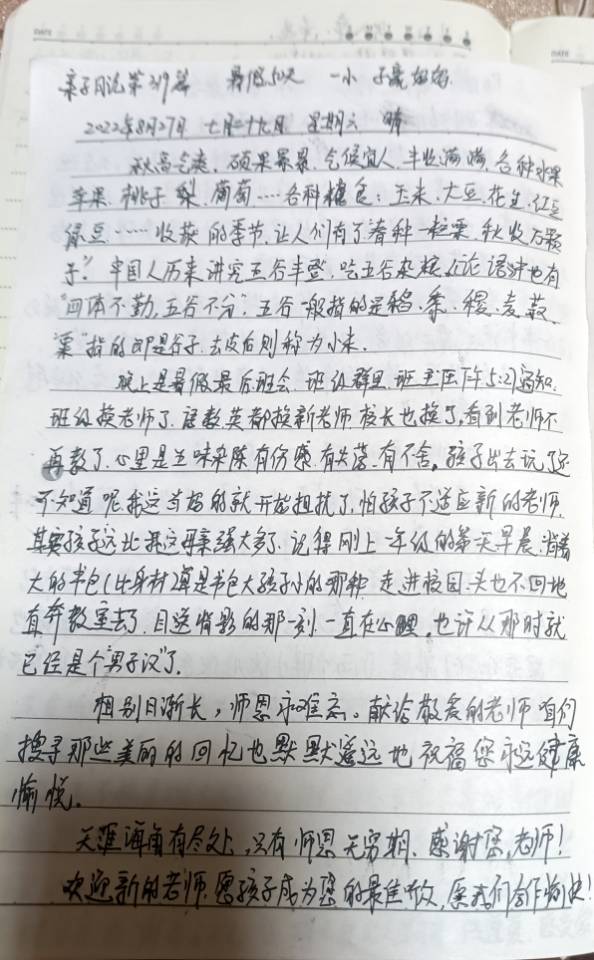 亲子日记第319篇 暑假50天 一小 子豪妈妈
2022年8月27日 七月三十 星期六 晴
秋高气爽，硕果累累，气候宜人，丰收满满，各种水果
苹果、桃子、梨、葡萄……各种粮食：玉米、大豆、花生、红豆
绿豆……收获的季节，让人们有了"春种一粒粟，秋收万颗
子"！中国人历来讲究五谷丰登，吃五谷杂粮，《论语》中也有
"四体不勤，五谷不分"。五谷一般指的是稻、黍、稷、麦、菽，
"粟"指的即是谷子，去皮后则称为小米。
晚上是暑假最后班会，班级群里，班主任下午5:27通知，
班级换老师了，语数英都换新老师，校长也换了，看到老师不
再教了，心里是五味杂陈，有伤感、有失落、有不舍。孩子出去玩了还
不知道呢，我这当妈的就开始担忧了，怕孩子不适应新的老师，
其实孩子远比我这母亲强大多了，记得刚上一年级的第一天早晨，背着
大的书包（比身材）算是书包大孩子小的那种，走进校园，头也不回地
直奔教室去了，目送背影的那一刻一直在心里，也许从那时就
已经是个"男子汉"了。
相别日渐长，师恩永难忘。献给敬爱的老师，咱们
搜寻那些美丽的回忆也默默遥远地祝福您永远健康
愉悦。
天涯海角有尽处，只有师恩无穷期，感谢您，老师！
欢迎新的老师，愿孩子成为您的最佳，愿我们合作愉快！